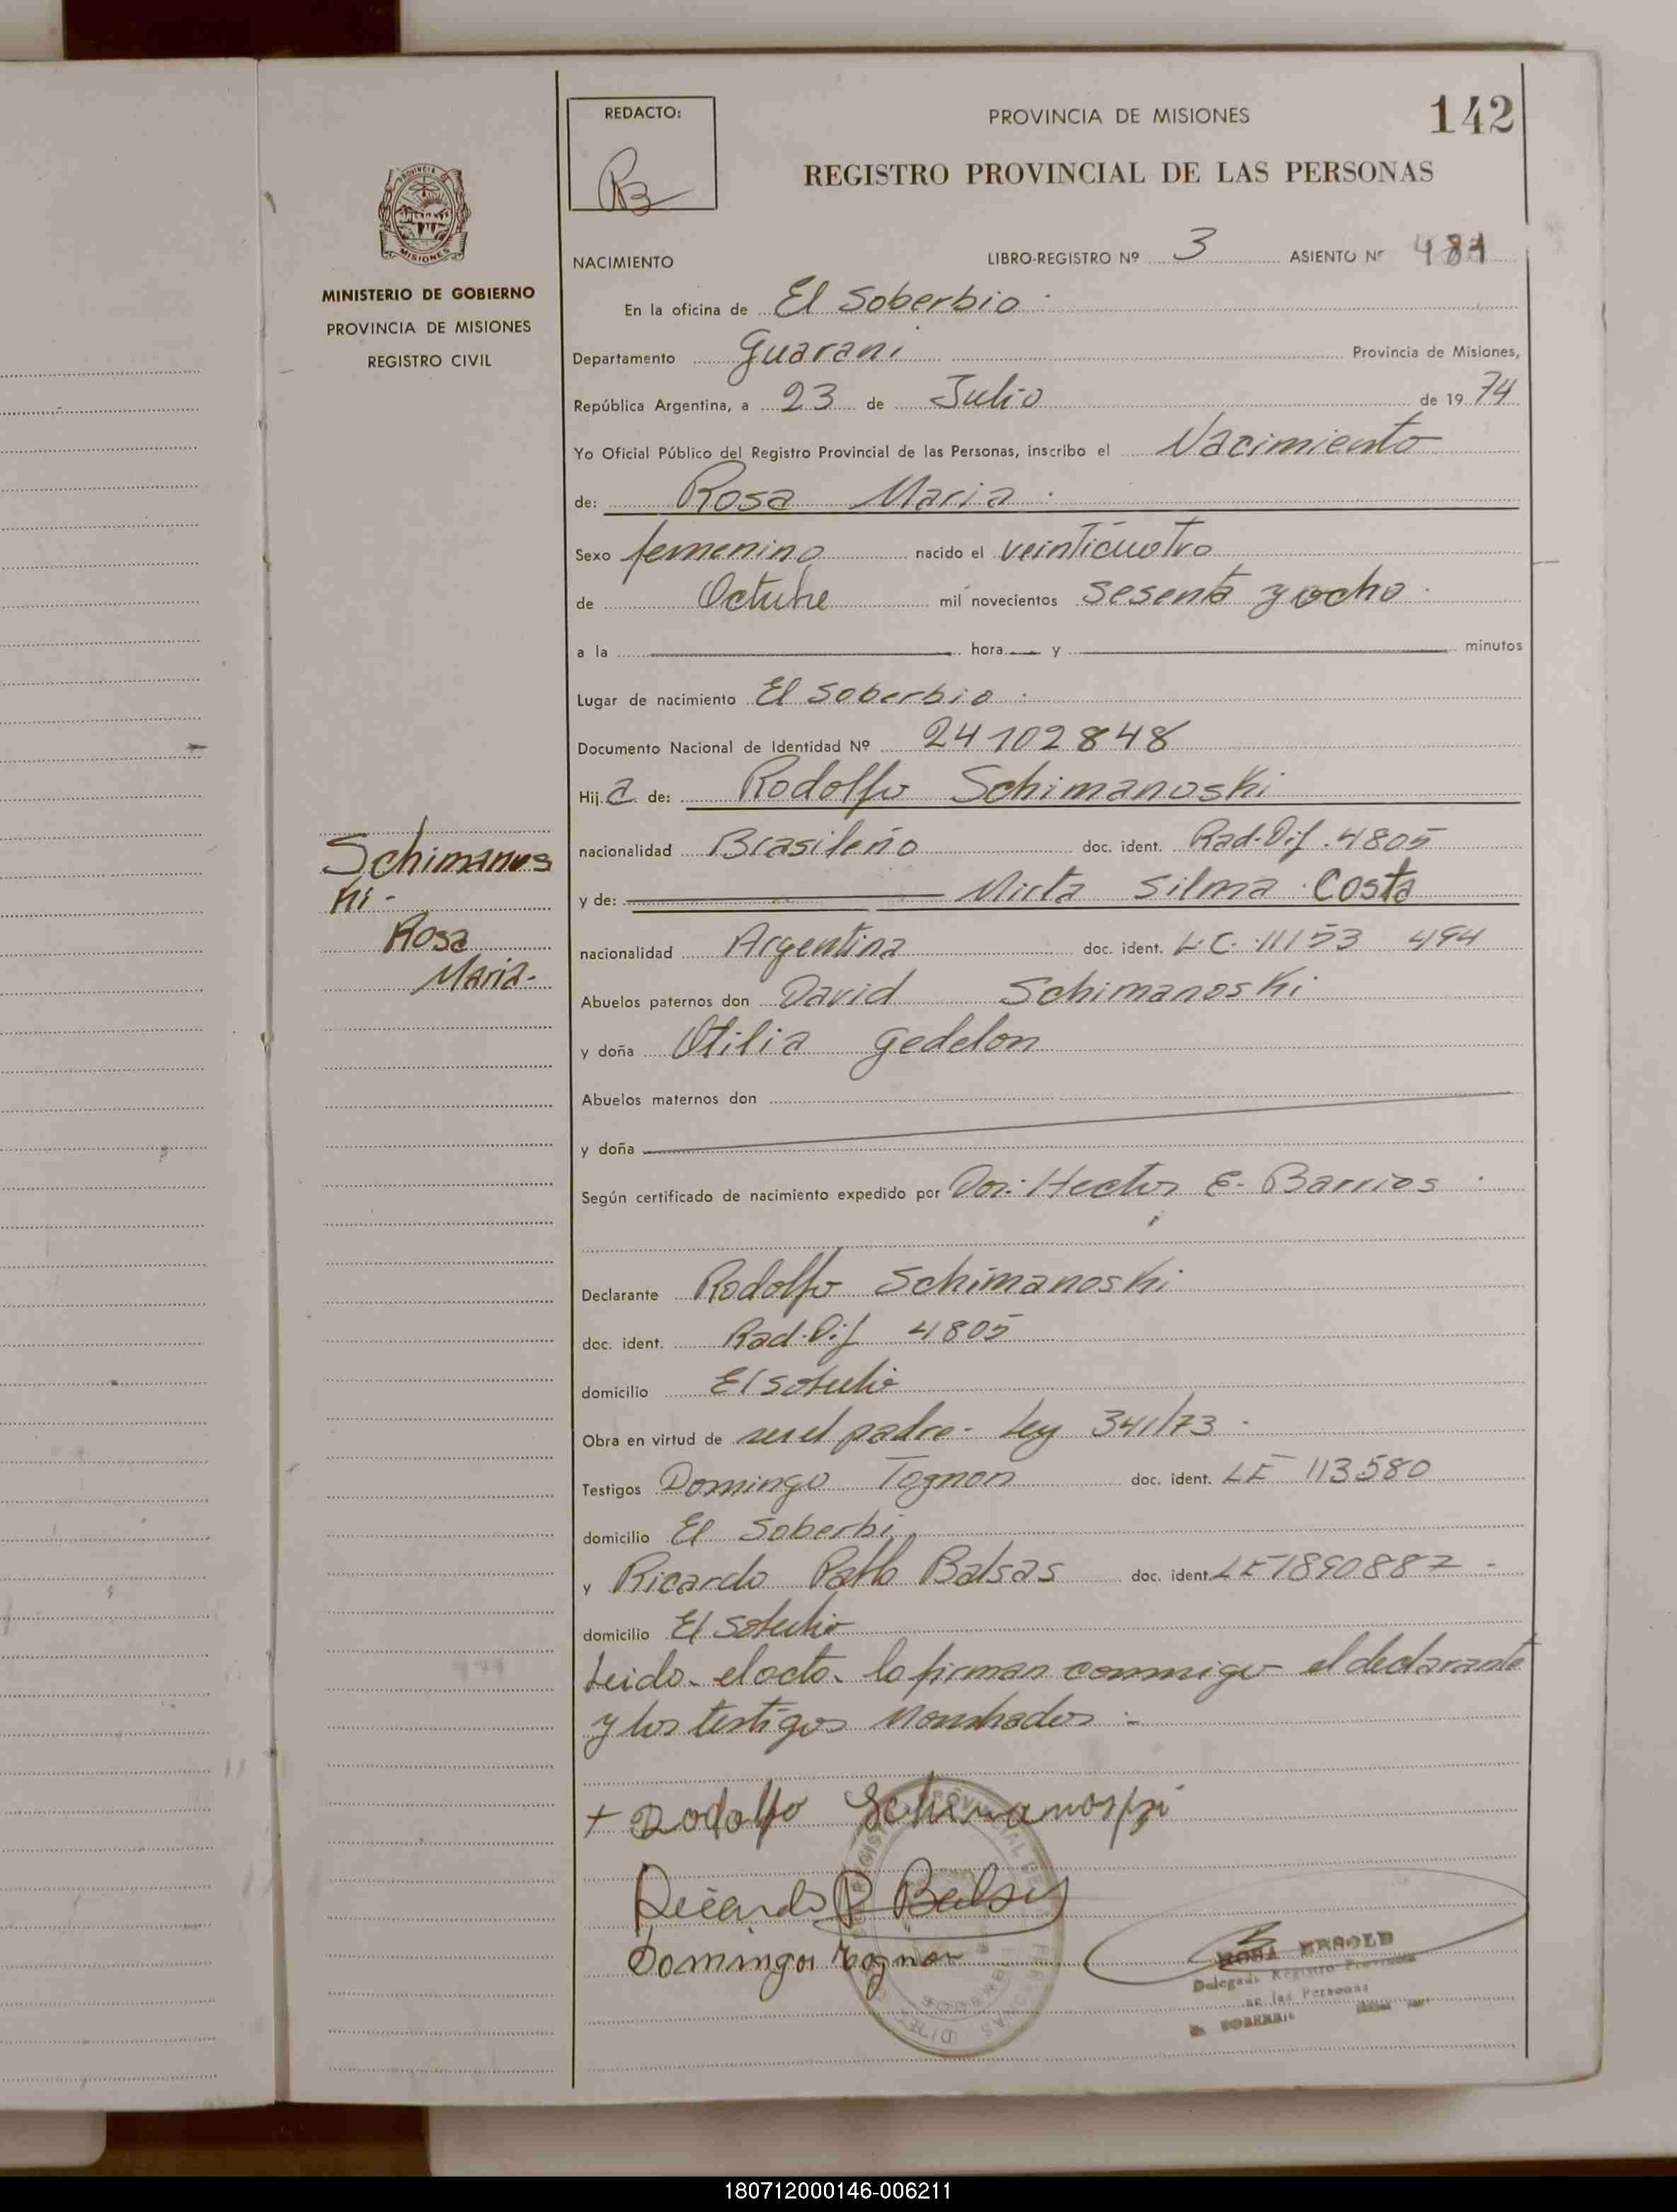 142
REDACTO:
PROVINCIA DE MISIONES
REGISTRO PROVINCIAL DE LAS PERSONAS
PROVINCIA DE
MISIONES
MINISTERIO DE GOBIERNO
PROVINCIA DE MISIONES
REGISTRO CIVIL
NACIMIENTO LIBRO-REGISTRO Nº 3 ASIENTO Nº 481
En la oficina de El Soberbio
Departamento Guarani Provincia de Misiones,
República Argentina, a 23 de Julio de 1974
Yo Oficial Público del Registro Provincial de las Personas, inscribo el Nacimiento
de: Rosa Maria
Sexo femenino nacido el veinticuatro
de Octubre mil novecientos sesenta y ocho
a la hora y minutos
Lugar de nacimiento El Soberbio
Documento Nacional de Identidad Nº 24102848
Hija de: Rodolfo Schimanoski
nacionalidad Brasileño doc. ident. Rad. Dif. 4805
y de: Mirta Silma Costa
nacionalidad Argentina doc. ident. L.C. 11153 494
Abuelos paternos don David Schimanoski
y doña Otilia Gedelon
Abuelos maternos don
y doña
Según certificado de nacimiento expedido por Dor. Hector E. Barrios
Declarante Rodolfo Schimanoski
doc. ident. Rad. Dif 4805
domicilio El Soberbio
Obra en virtud de ser el padre - Ley 341/73
Testigos Domingo Tognon doc. ident. LE 113580
domicilio El Soberbi
y Ricardo Pablo Balsas doc. ident. LE 1890887 -
domicilio El Soberbio
Leido el acto lo firman conmigo el declarante
y los testigos
Schimanos
ki -
Rosa
Maria -
+ Rodolfo Schimanoski
Ricardo P Balsas
Domingo Tognon
ROSA ERSOLD
Delegada Registro Provincial
de las Personas
180712000146-006211